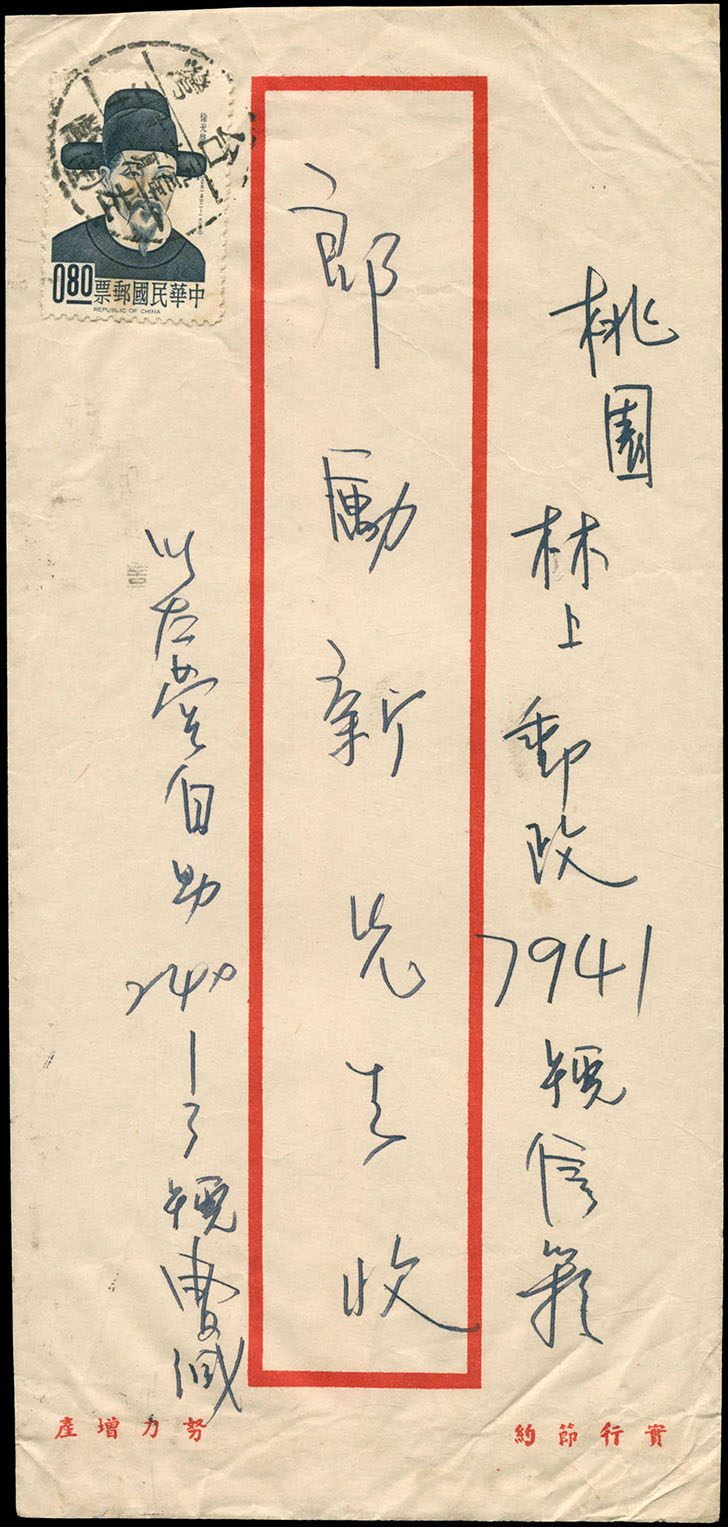 桃園
林上郵政7941號信箱
郎勵新先生收
左營自助240
號曹
徐光啓
0.80
中華民國郵票
REPUBLIC OF CHINA
實行節約
努力增產